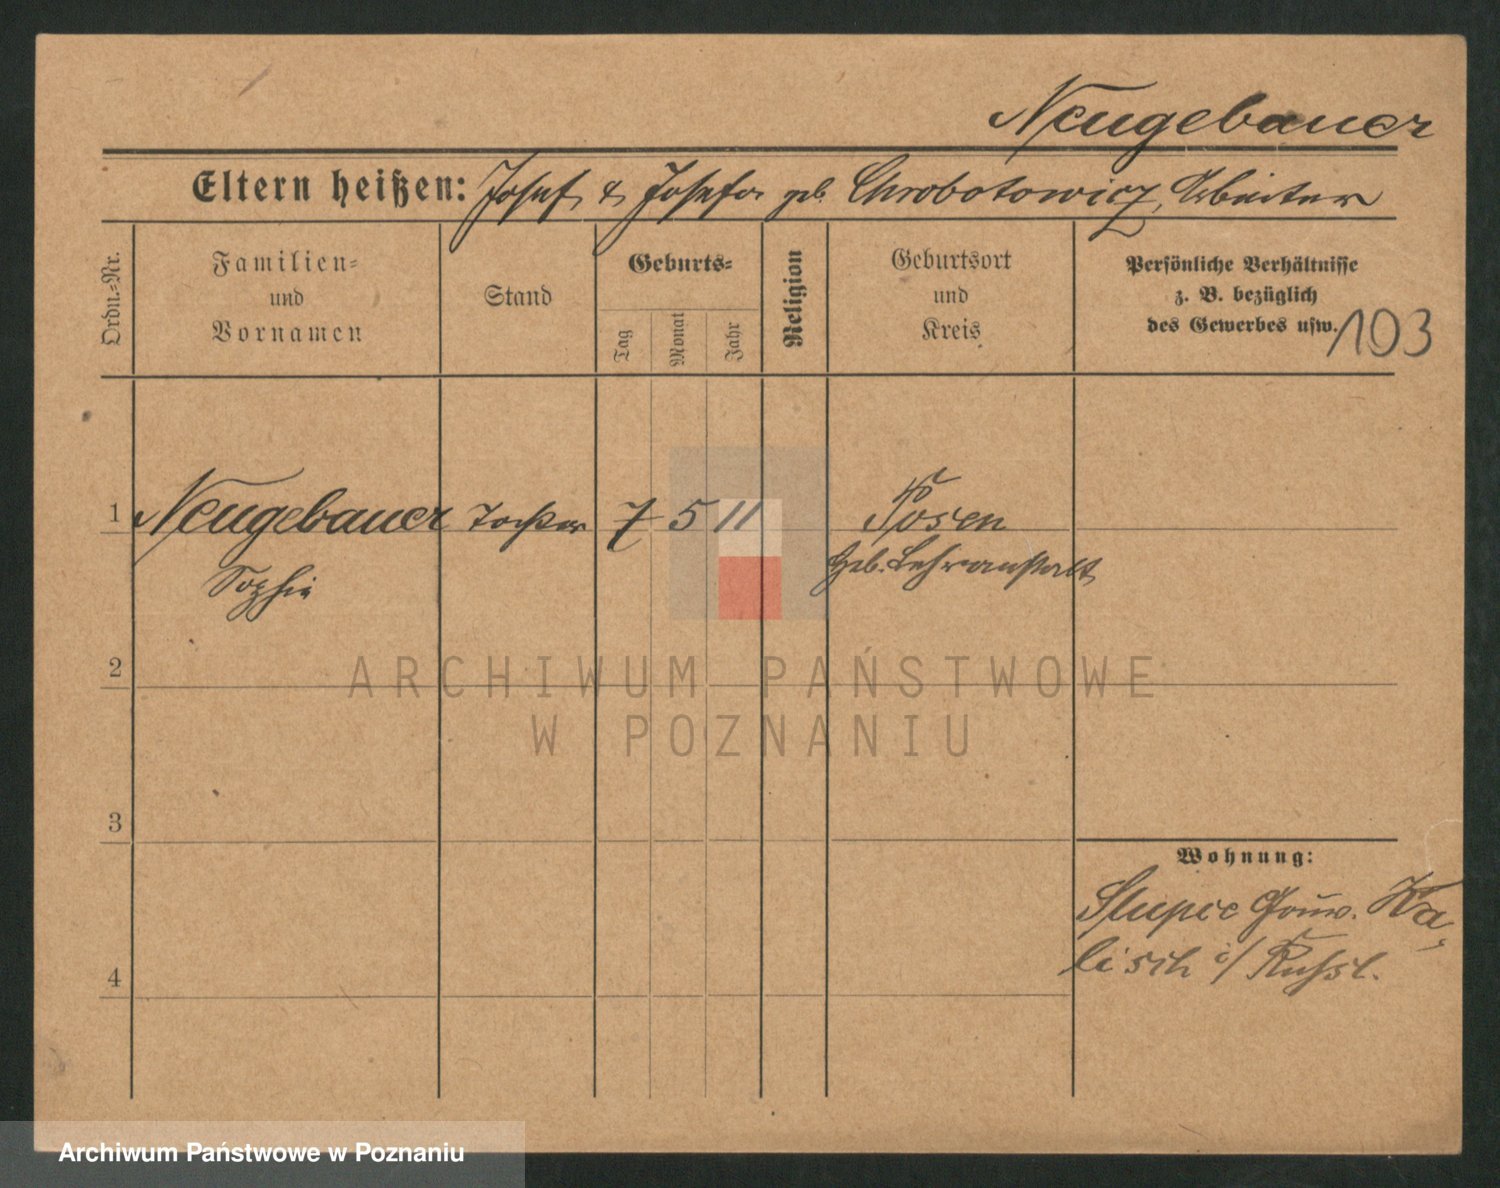 Neugebauer
Eltern heißen: Josef & Josefa geb. Chrobotowicz, Arbeiter
Ordn.=Nr.
Familien=
und
Vornamen
Stand
Geburts=
Tag
Monat
Jahr
Religion
Geburtsort
und
Kreis
Persönliche Verhältnisse
z. B. bezüglich
des Gewerbes usw.
103
1 Neugebauer Tochter 7 5 11 Posen
Sophie Heb. Lehranstalt
2
ARCHIWUM PAŃSTWOWE
W POZNANIU
3
Wohnung:
Slupce Gouv. Ka
lisch i/ Russl.
4
Archiwum Państwowe w Poznaniu